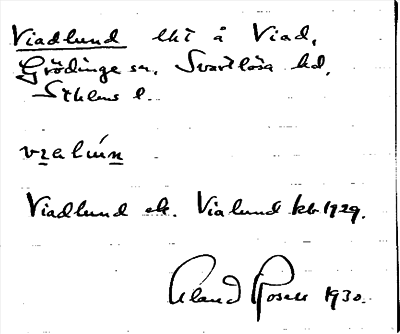 Viadlund lht å Viad,
Grödinge sn, Svartlösa hd,
Sthlms l.
vɪalún
Viadlund ek. Vialund kb 1929.
Roser 1930.